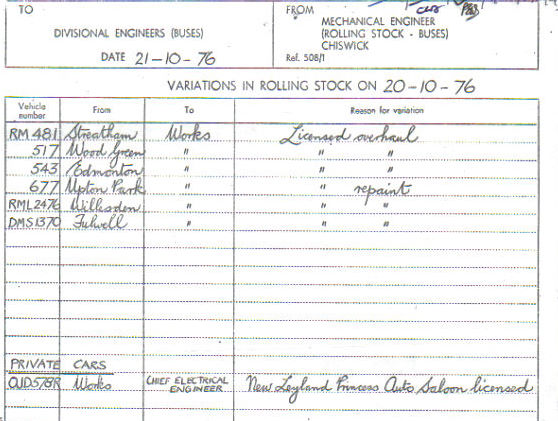 cars
TO
FROM
MECHANICAL ENGINEER
(ROLLING STOCK - BUSES)
CHISWICK
DIVISIONAL ENGINEERS (BUSES)
DATE 21-10-76
Ref. 508/1
VARIATIONS IN ROLLING STOCK ON 20-10-76
Vehicle number From To Reason for variation
RM 481 Streatham Works Licensed overhaul
517 Wood Green " " "
543 Edmonton " " "
677 Upton Park " " repaint
RML 2476 Willesden " " "
DMS 1370 Fulwell " " "
PRIVATE CARS
OJD578R Works CHIEF ELECTRICAL ENGINEER New Leyland Princess Auto Saloon licensed